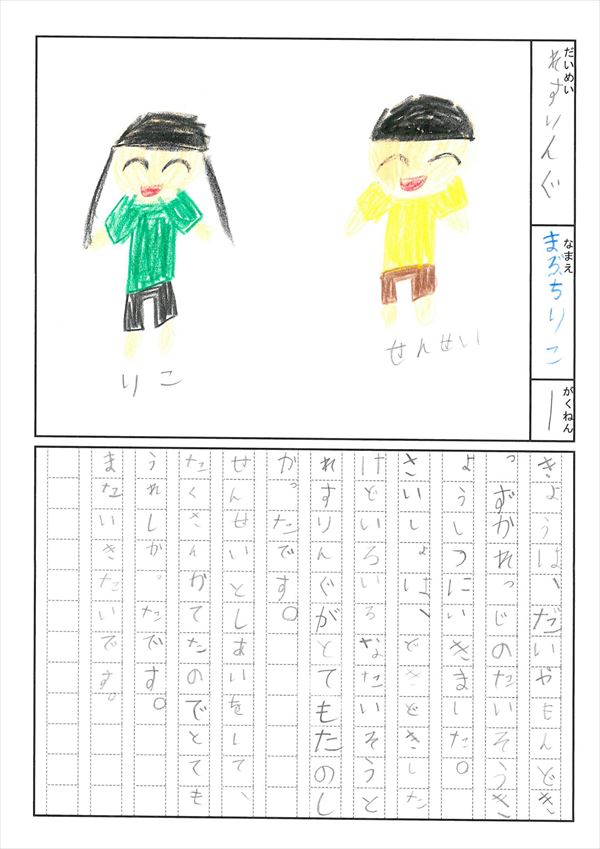 だいめい
れすりんぐ
なまえ
まぶちりこ
がくねん
1
りこ
せんせい
きょうは、だいやもんどき
っずかれっじのたいそうき
ょうしつにいきました。
さいしょは、どきどきした
けどいろいろなたいそうと
れすりんぐがとてもたのし
かったです。
せんせいとしあいをして、
たくさんかてたのでとても
うれしかったです。
またいきたいです。